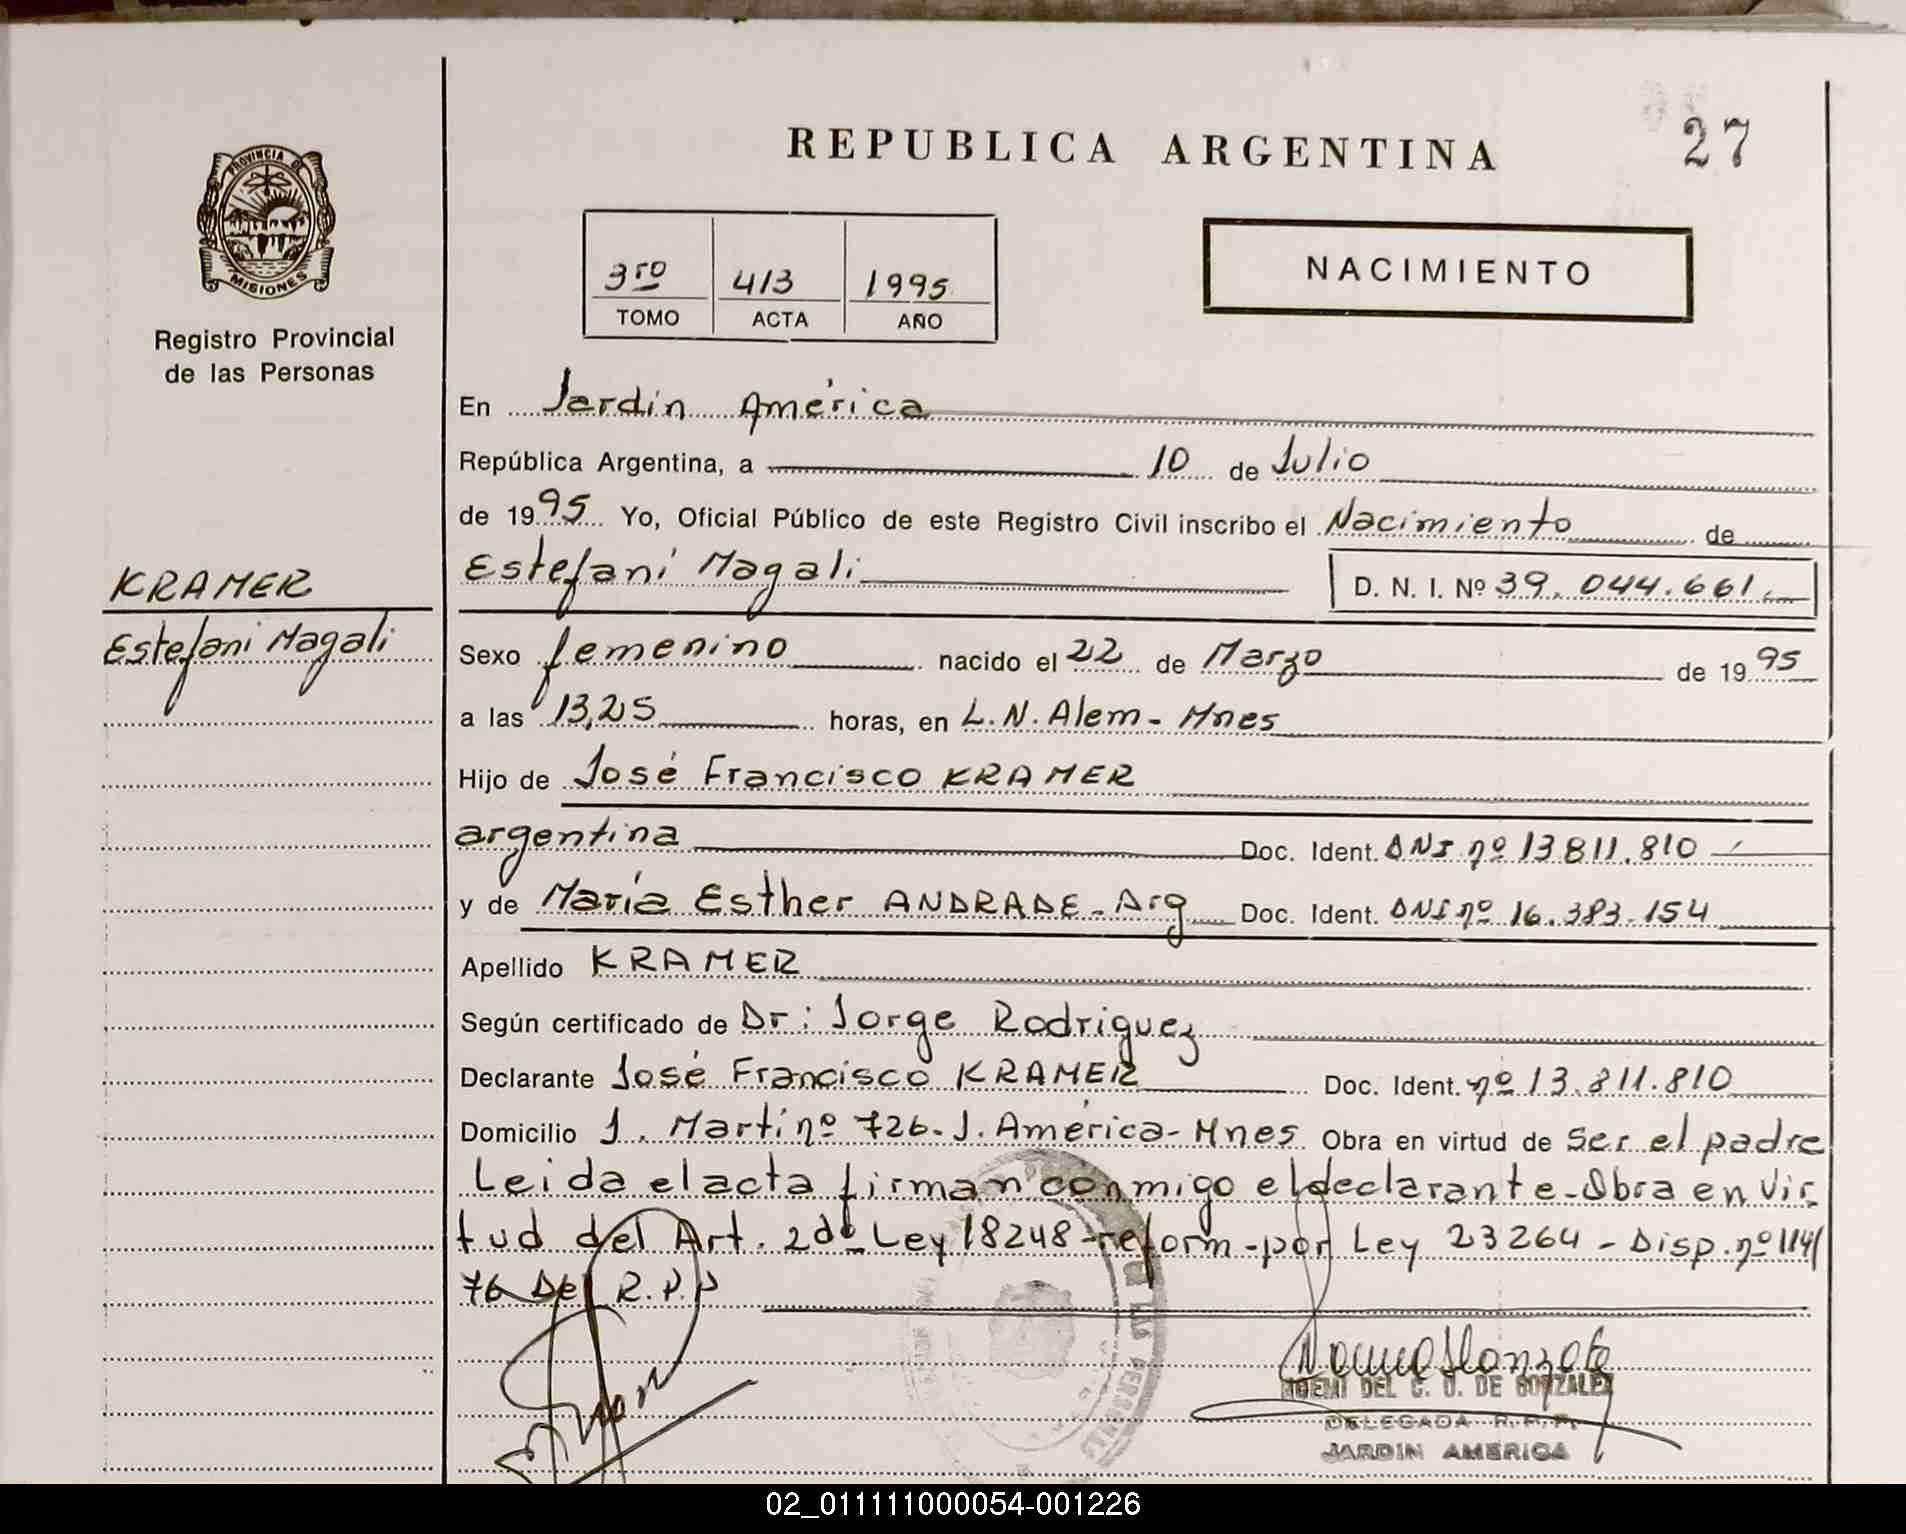 REPUBLICA ARGENTINA
27
PROVINCIA DE
MISIONES
Registro Provincial
de las Personas
3ro 413 1995
TOMO ACTA AÑO
NACIMIENTO
En Jardín América
República Argentina, a 10 de Julio
de 1995 Yo, Oficial Público de este Registro Civil inscribo el Nacimiento de
Estefani Magali D. N. I. Nº 39.044.661.
KRAMER
Estefani Magali
Sexo femenino nacido el 22 de Marzo de 1995
a las 13,25 horas, en L.N. Alem - Mnes
Hijo de José Francisco KRAMER
argentina Doc. Ident. DNI nº 13811.810
y de María Esther ANDRADE - Arg Doc. Ident. DNI nº 16.383.154
Apellido KRAMER
Según certificado de Dr: Jorge Rodriguez
Declarante José Francisco KRAMER Doc. Ident. nº 13.811.810
Domicilio J. Martí nº 726- J. América- Mnes Obra en virtud de ser el padre
Leida el acta firman conmigo el declarante-Obra en vir-
tud del Art. 2do Ley 18248-reform-por Ley 23264 - Disp. nº 114/
76 Del R.P.P
LAS PERSONAS
NOEMI DEL C. O. DE GONZALEZ
DELEGADA R.P.P.
JARDIN AMERICA
02_011111000054-001226